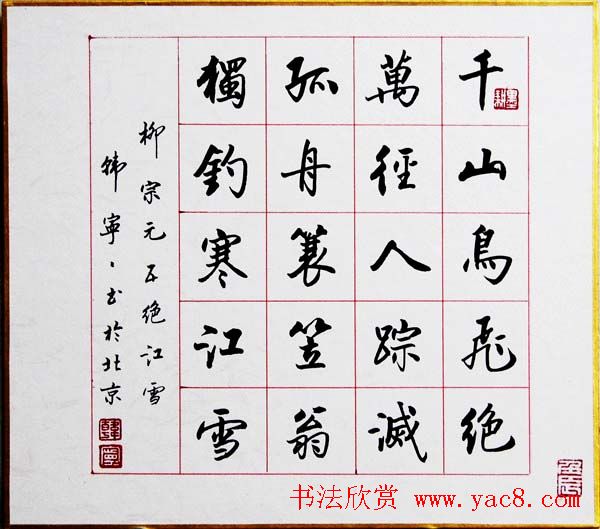 千山鳥飛絶
萬徑人踪滅
孤舟蓑笠翁
獨釣寒江雪
柳宗元五絶江雪
韓寧寧书於北京
韓寧
书法欣赏 www.yac8.com